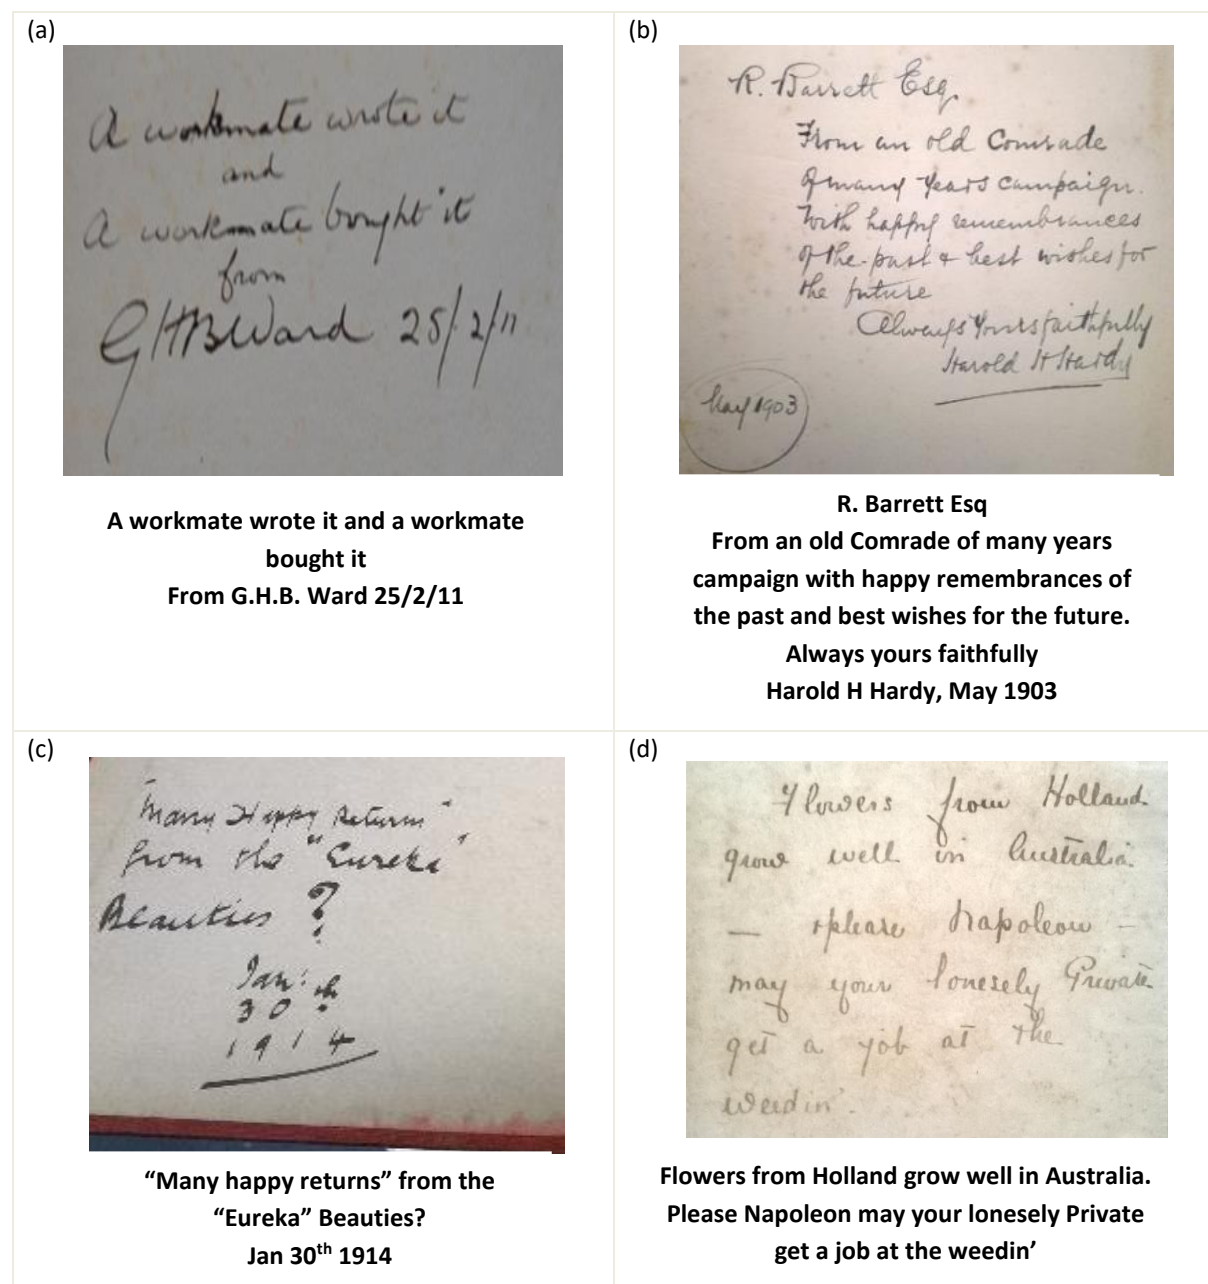 (a)
A workmate wrote it
and
A workmate bought it
from
GHBWard 25/2/11
A workmate wrote it and a workmate
bought it
From G.H.B. Ward 25/2/11
(b)
R. Barrett Esq.
From an old Comrade
of many years campaign.
With happy remembrances
of the past & best wishes for
the future
Always Yours faithfully
Harold H Hardy
May 1903
R. Barrett Esq
From an old Comrade of many years
campaign with happy remembrances of
the past and best wishes for the future.
Always yours faithfully
Harold H Hardy, May 1903
(c)
"Many Happy Returns"
from the "Eureka"
Beauties ?
Jan: th
30
1914
“Many happy returns” from the
“Eureka” Beauties?
Jan 30th 1914
(d)
Flowers from Holland
grow well in Australia.
— please Napoleon —
may your lonesely Private
get a job at the
weedin'.
Flowers from Holland grow well in Australia.
Please Napoleon may your lonesely Private
get a job at the weedin’